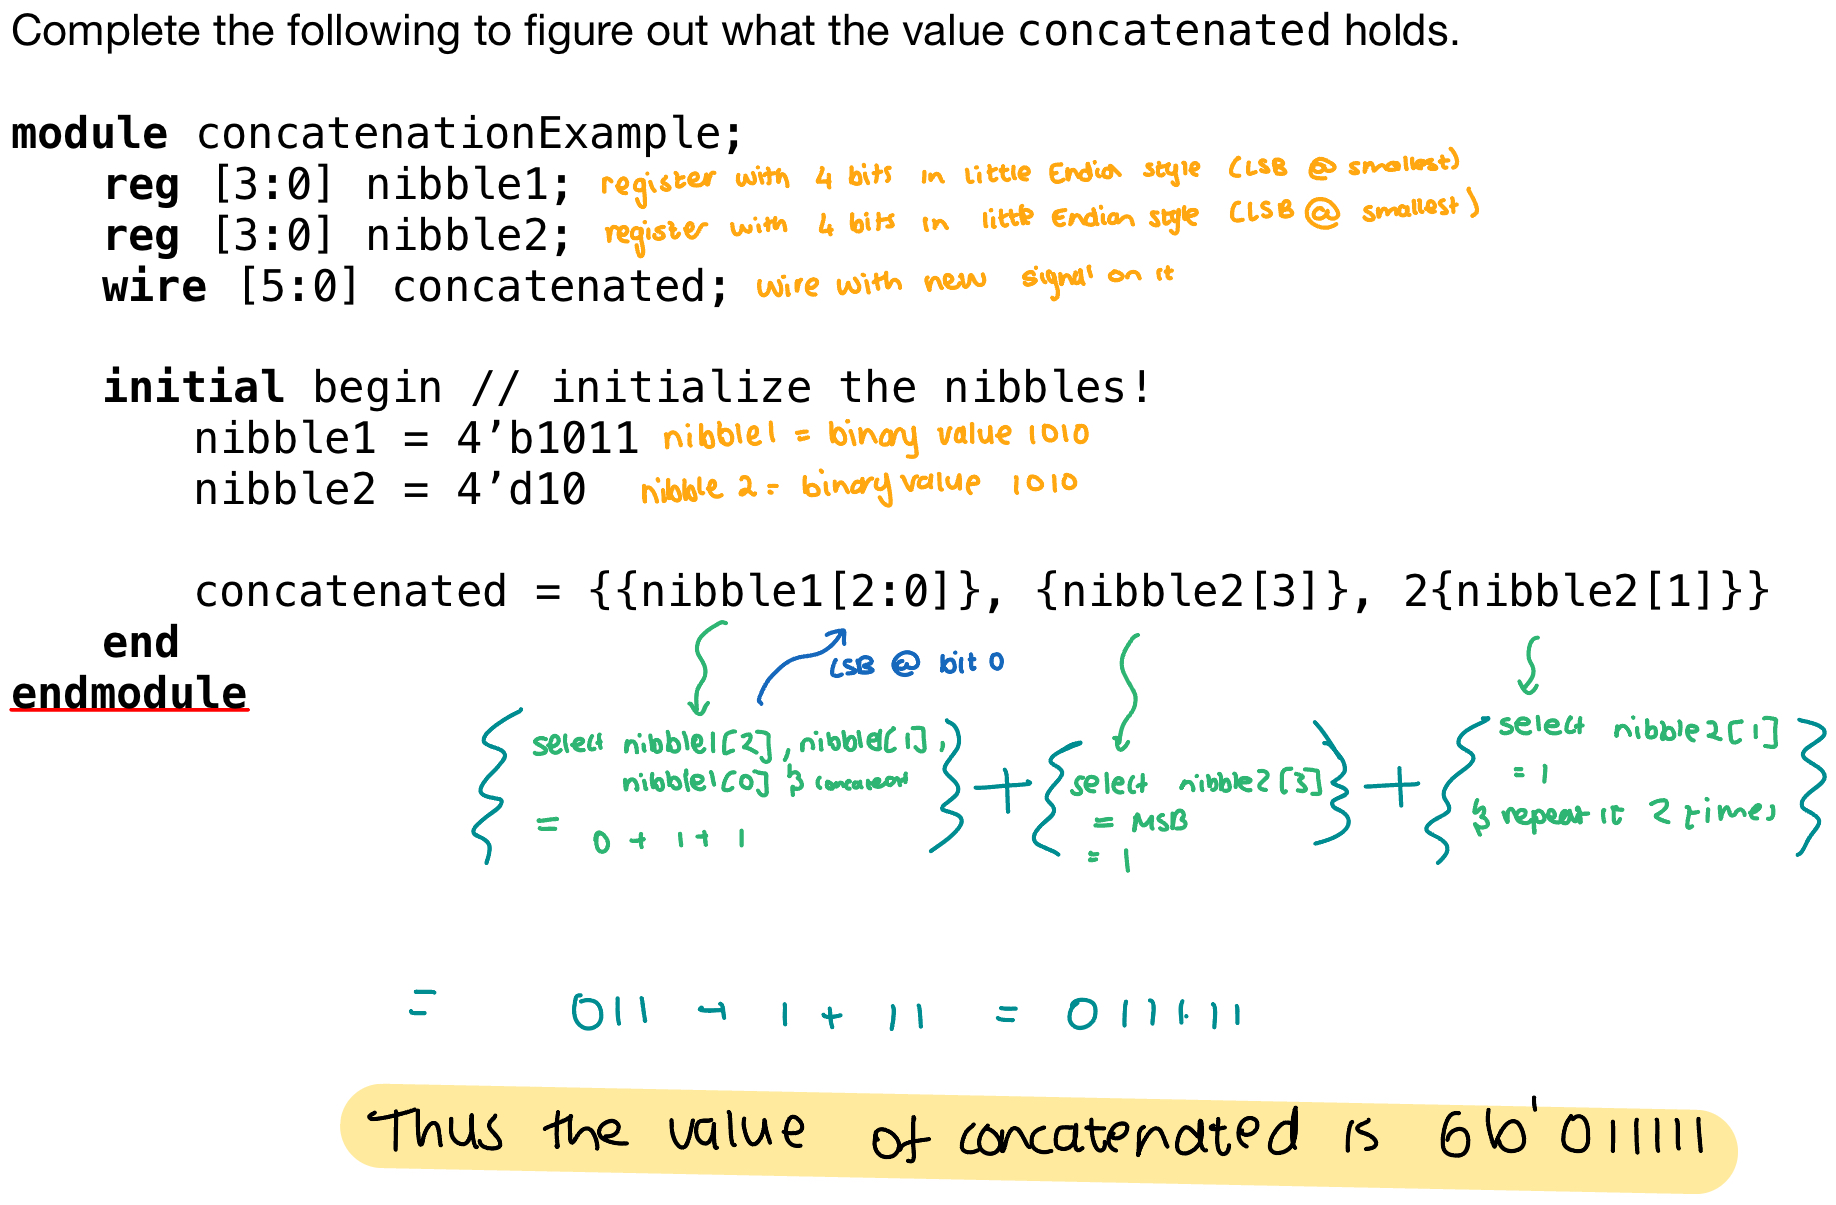 Complete the following to figure out what the value concatenated holds.
module concatenationExample;
reg [3:0] nibble1; register with 4 bits in little Endian style (LSB @ smallest)
reg [3:0] nibble2; register with 4 bits in little Endian style (LSB @ smallest)
wire [5:0] concatenated; wire with new signal on it
initial begin // initialize the nibbles!
nibble1 = 4’b1011 nibble1 = binary value 1010
nibble2 = 4’d10 nibble 2 = binary value 1010
concatenated = {{nibble1[2:0]}, {nibble2[3]}, 2{nibble2[1]}}
end
LSB @ bit 0
endmodule
{ select nibble1[2], nibble1[1],
nibble1[0] & concatenate
= 0 + 1 + 1 } + { select nibble2[3]
= MSB
= 1 } + { select nibble2[1]
= 1
& repeat it 2 times }
= 011 + 1 + 11 = 011111
Thus the value of concatenated is 6b'011111